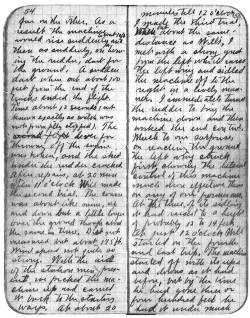 54
gun on the other. As a
result the machine would
sudden dart when out about 100
feet from the end of the
tracks ended the flight.
Time about 12 seconds (not
known exactly as watch was
not promptly stopped). The
throwing off the engine
was broken, and the skid
under the rudder cracked.
After repairs, at 20 min.
after 11 o'clock Will made
the second trial. The course
was about like mine, up
and down but a little longer
over the ground though about
the same in time. Dist. not
measured but about 175 ft.
Wind speed not quite so
strong. With the aid
of the station men pre-
sent, we picked the ma-
chine up and carried
it back to the starting
ways. At about 20
minutes till 12 o'clock
I made the third trial.
When out about the same
distance as Will's, I
met with a strong gust
from the left which raised
the left wing and sidled
the machine off to the
right in a lively man-
ner. I immediately turned
the rudder to bring the
machine down and then
worked the end control.
Much to our surprise
on reaching the ground
the left wing struck
first, showing the lateral
control of this machine
much more effective than
on any of our former ones.
At the time of its sidling
it had raised to a height
of probably 12 to 14 feet.
At just 12 o'clock Will
started on the fourth
and last trip. The machine
started off with its ups
and downs as it had
before, but by the time
he had gone three or
four hundred feet he
had it under much